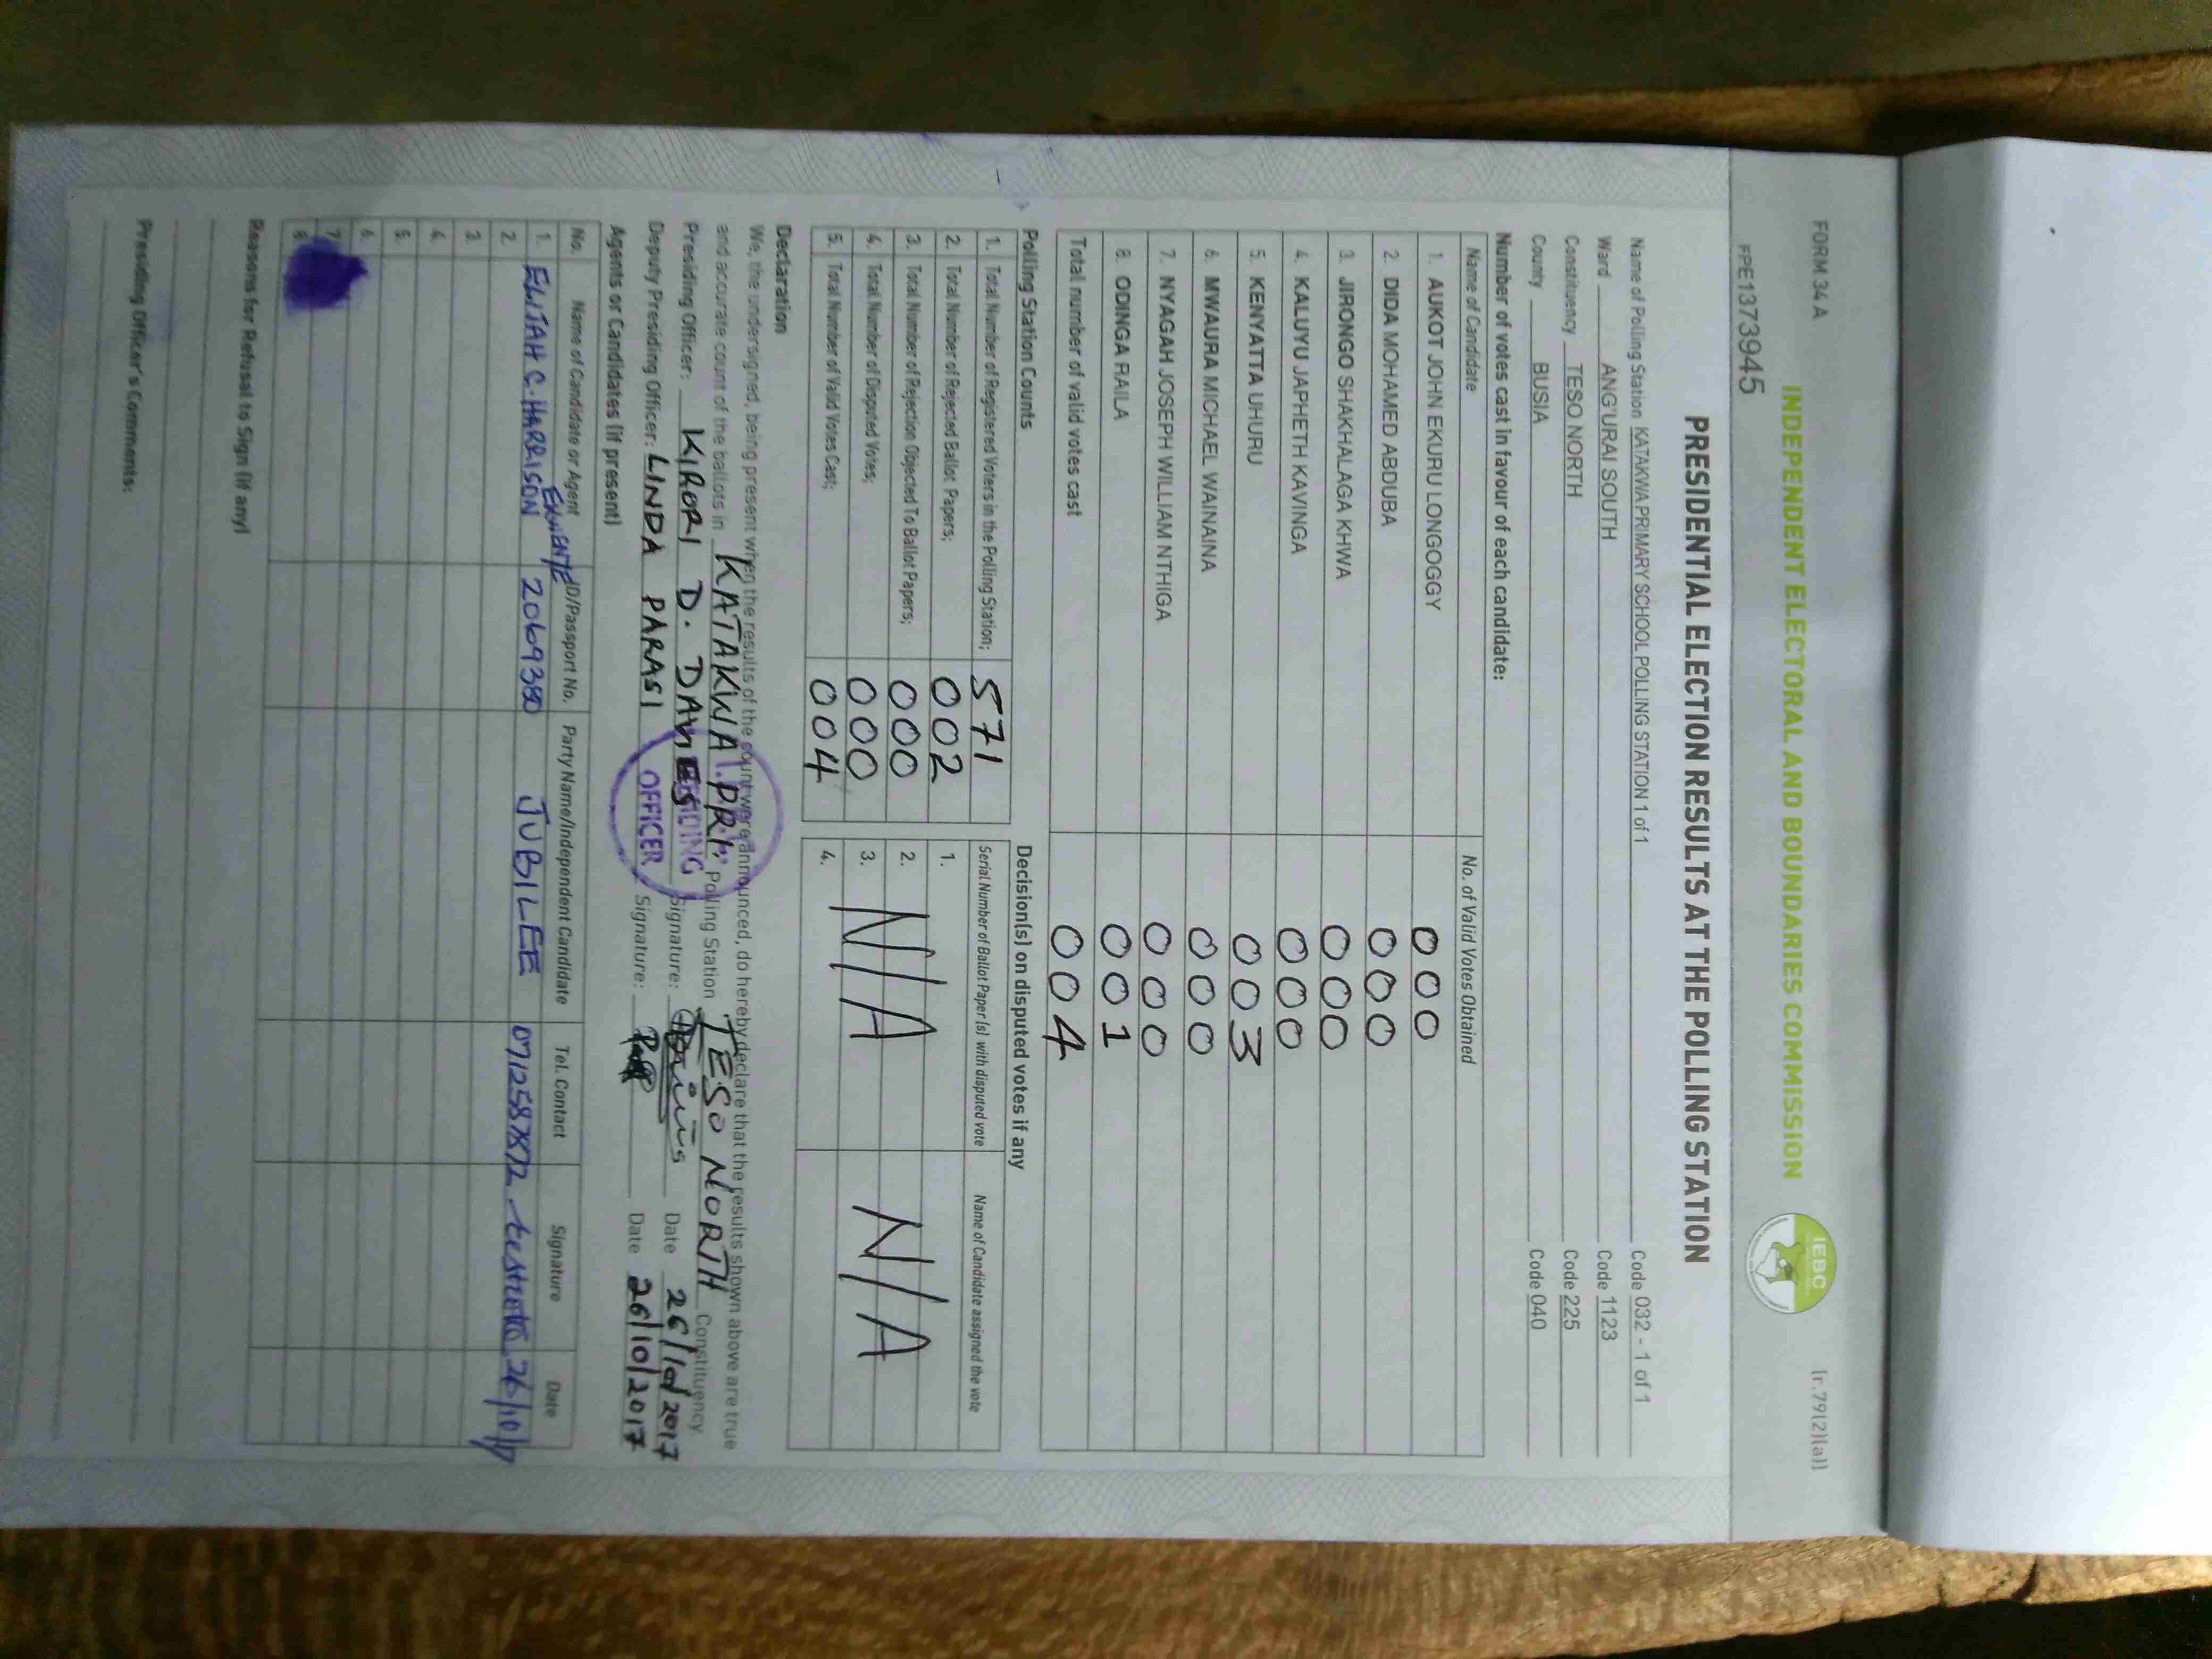 FORM 34A
(r.79(2)(a))
INDEPENDENT ELECTORAL AND BOUNDARIES COMMISSION
IEBC
PPE1373945
PRESIDENTIAL ELECTION RESULTS AT THE POLLING STATION
Name of Polling Station KATAKWA PRIMARY SCHOOL POLLING STATION 1 of 1 Code 032 - 1 of 1
Ward ANG'URAI SOUTH Code 1123
Constituency TESO NORTH Code 225
County BUSIA Code 040
Number of votes cast in favour of each candidate:
Name of Candidate No. of Valid Votes Obtained
1. AUKOT JOHN EKURU LONGOGGY 000
2. DIDA MOHAMED ABDUBA 000
3. JIRONGO SHAKHALAGA KHWA 000
4. KALUYU JAPHETH KAVINGA 000
5. KENYATTA UHURU 003
6. MWAURA MICHAEL WAINAINA 000
7. NYAGAH JOSEPH WILLIAM NTHIGA 000
8. ODINGA RAILA 001
Total number of valid votes cast 004
Polling Station Counts
1. Total Number of Registered Voters in the Polling Station; 571
2. Total Number of Rejected Ballot Papers; 002
3. Total Number of Rejection Objected To Ballot Papers; 000
4. Total Number of Disputed Votes; 000
5. Total Number of Valid Votes Cast; 004
Decision(s) on disputed votes if any
Serial Number of Ballot Paper (s) with disputed vote Name of Candidate assigned the vote
1.
2. N/A N/A
3.
4.
Declaration
We, the undersigned, being present when the results of the count were announced, do hereby declare that the results shown above are true
and accurate count of the ballots in KATAKWA PRI. Polling Station TESO NORTH Constituency.
Presiding Officer: KIRORI D. DAVES Signature: Date 26/10/2017
Deputy Presiding Officer: LINDA PARASI Signature: Date 26/10/2017
PRESIDING
OFFICER
Agents or Candidates (if present)
No. Name of Candidate or Agent ID/Passport No. Party Name/Independent Candidate Tel. Contact Signature Date
1. ELIJAH C. HARRISON 2069380 JUBILEE 0712587872 26/10/17
2.
3.
4.
5.
6.
7.
8.
Reasons for Refusal to Sign (if any)
Presiding Officer's Comments: